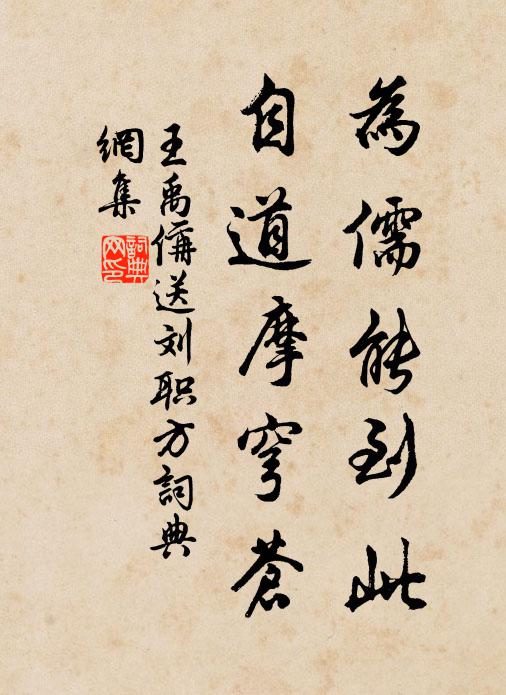 為儒能到此
自道摩穹蒼
王禹偁送刘职方詞典
網集
詞典
网印